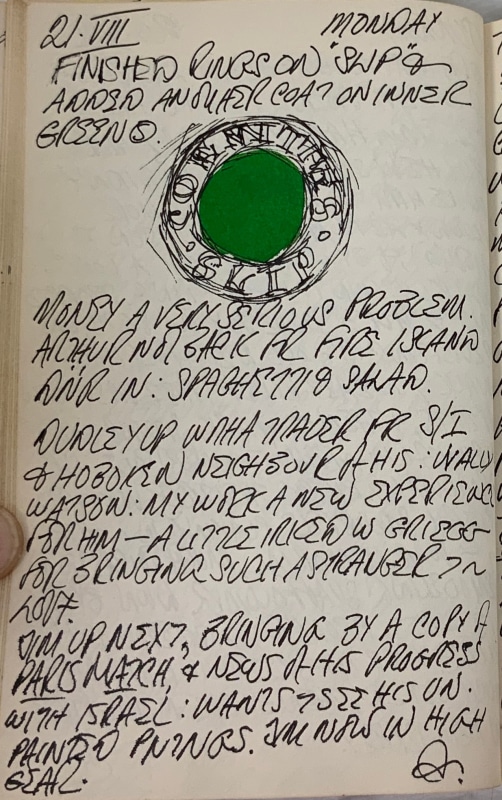 21·VIII MONDAY
FINISHED RINGS ON "SLIP" &
ADDED ANOTHER COAT ON INNER
GREEN
COENTIES · SLIP ·
MONEY A VERY SERIOUS PROBLEM.
ARTHUR NOT BACK FR FIRE ISLAND
DINR IN: SPAGHETTI & SALAD.
DUDLEY UP WITH A TRADER FR S/I
& HOBOKEN NEIGHBOUR OF HIS: WALLY
WATSON: MY WORK A NEW EXPERIENCE
FOR HIM — A LITTLE IRKED W GRIEGG
FOR BRINGING SUCH A STRANGER TO
LOFT.
JIM UP NEXT, BRINGING BY A COPY OF
PARIS MATCH, & NEWS OF HIS PROGRESS
WITH ISRAEL: WANTS TO SEE HIS UN-
PAINTED PNTNGS. JIM NOW IN HIGH
GEAR.